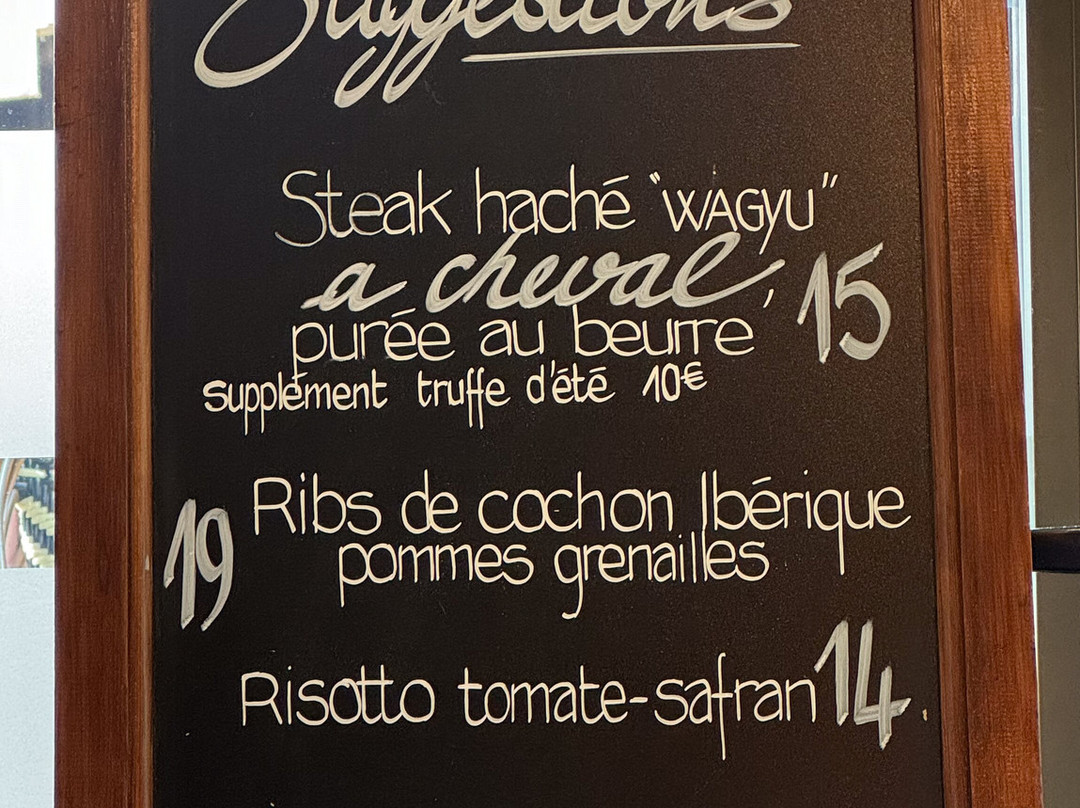 Suggestions
Steak haché "WAGYU"
a cheval, 15
purée au beurre
supplément truffe d'été 10€
19 Ribs de cochon Ibérique
pommes grenailles
Risotto tomate-safran 14